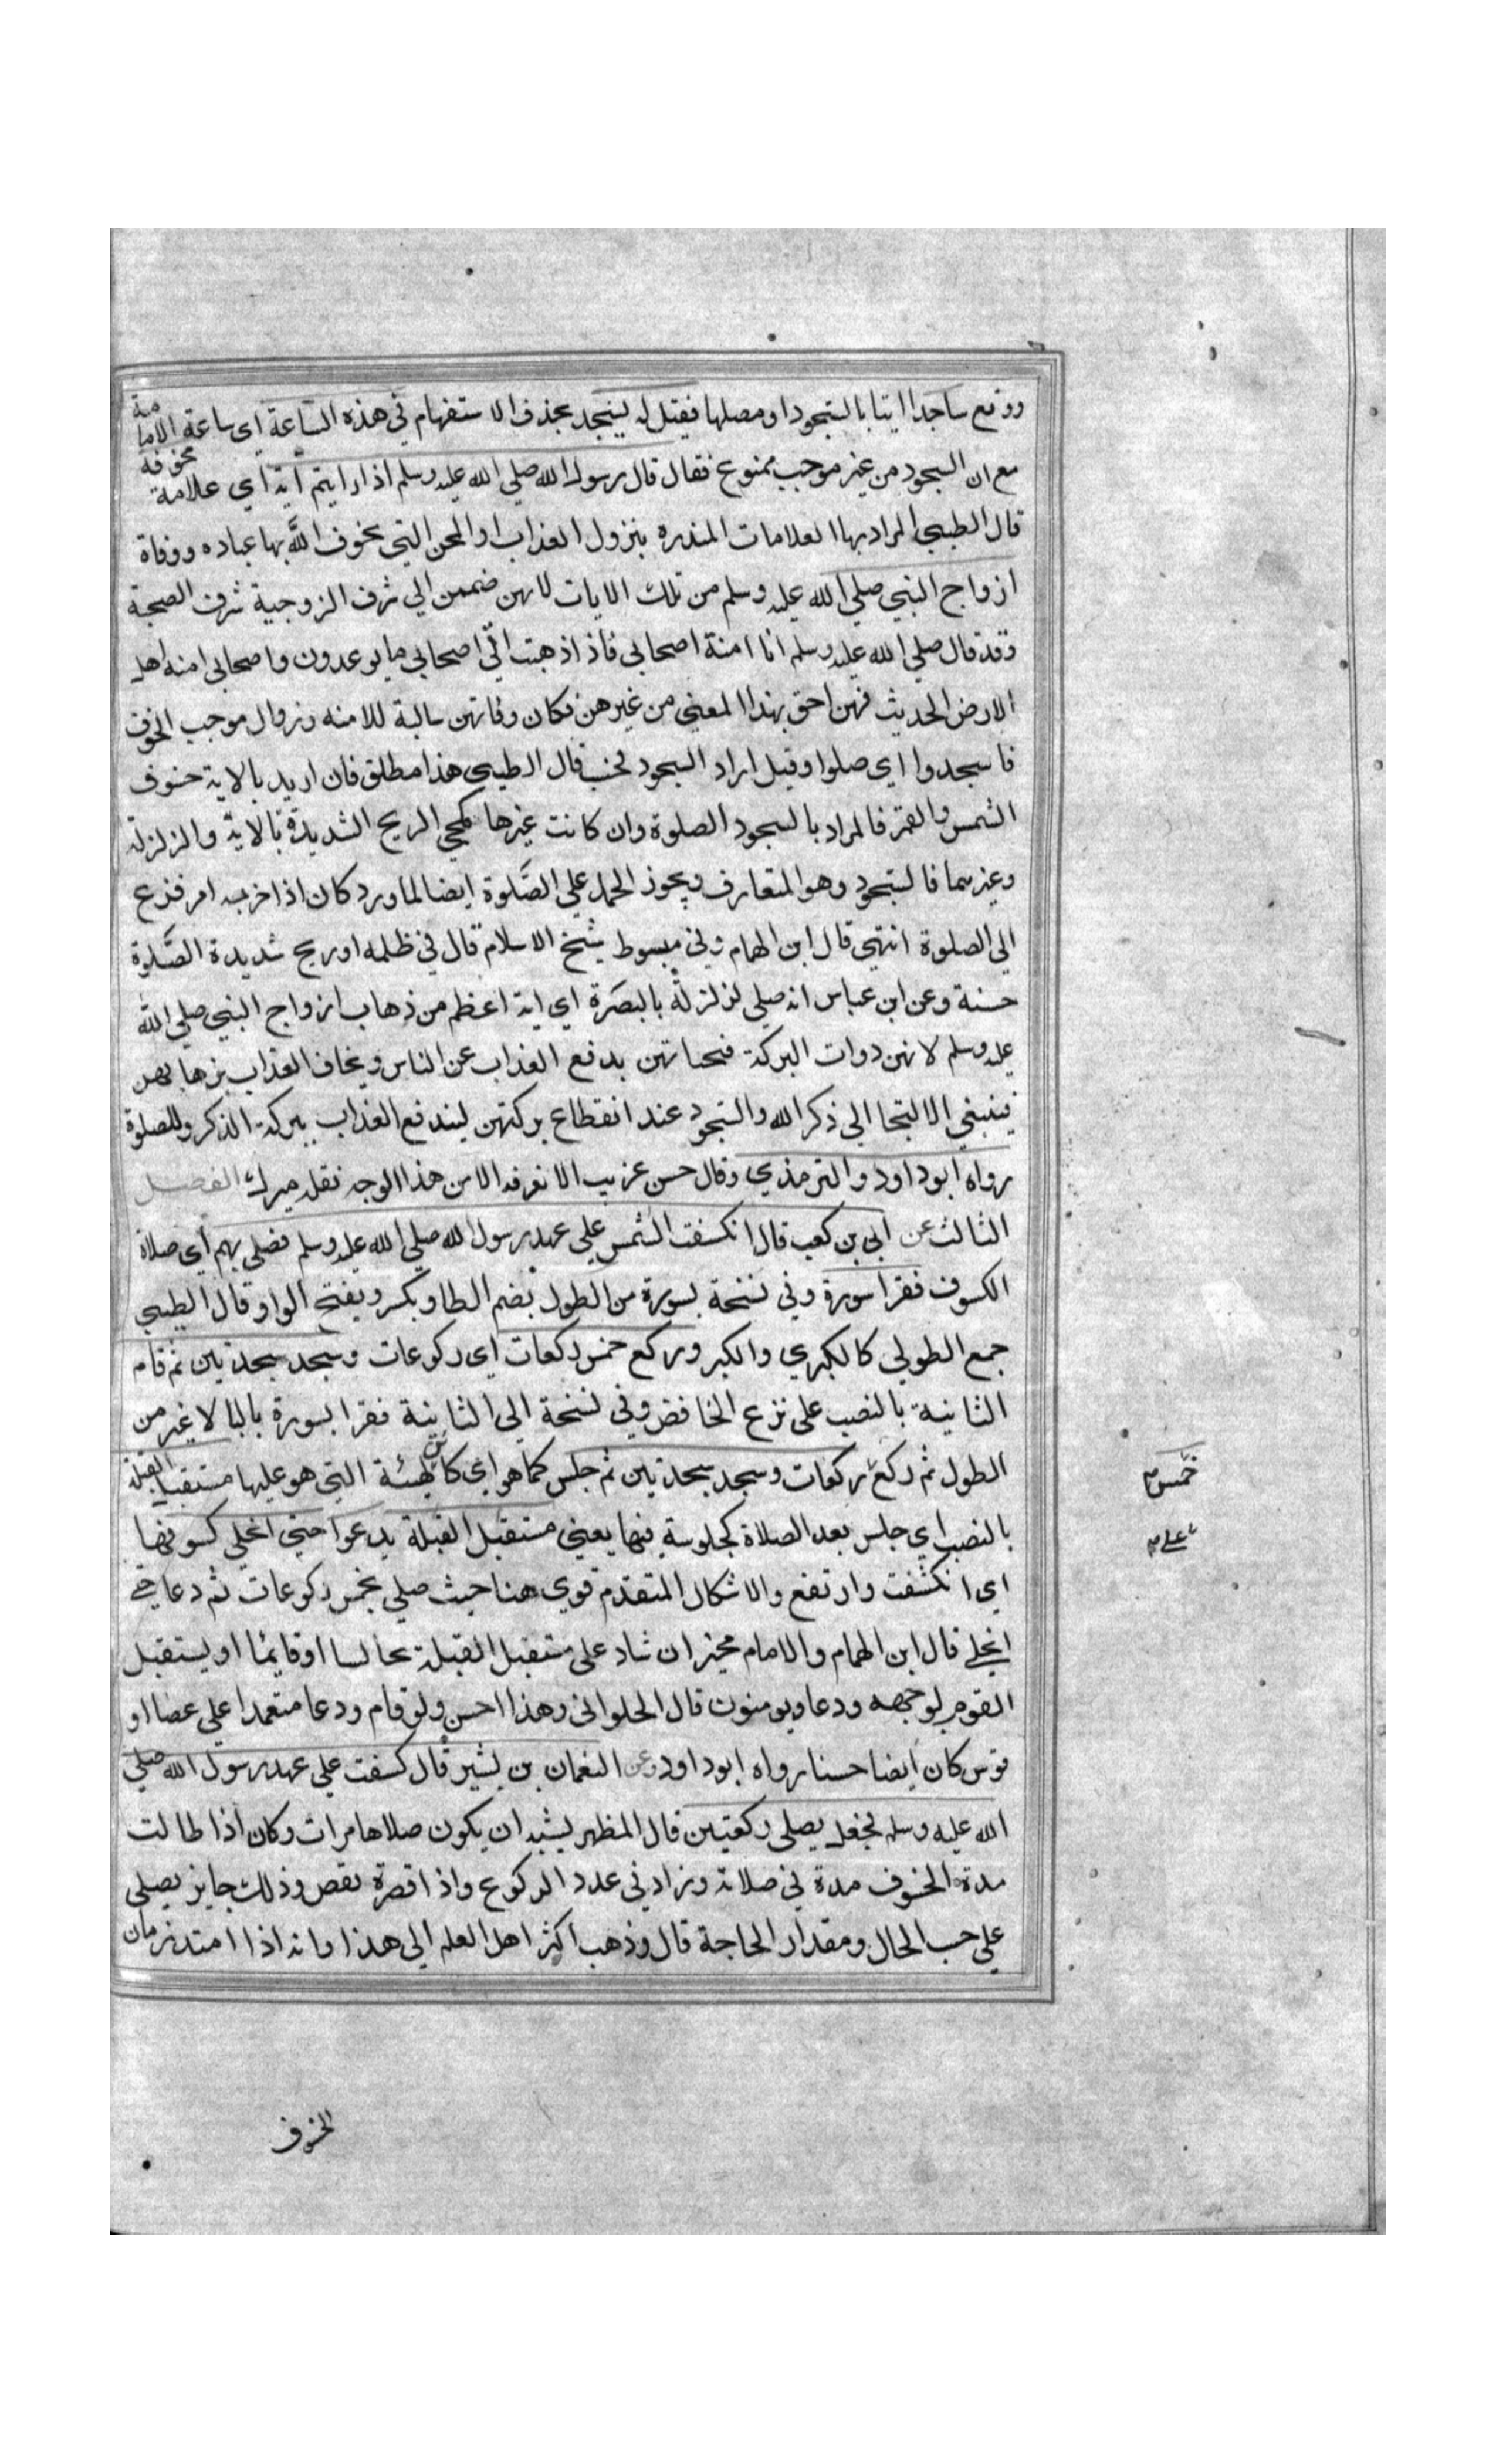 ووقع ساجدا ايتا بالسجود او مصلها فقيل له ليسجد بحذف الاستفهام في هذه الساعة اي ساعة الامامة
مع ان السجود من غير موجب ممنوع فقال قال رسول الله صلي الله عليه وسلم اذا رايتم آية اي علامة مخوفة
قال الطيبي المراد بها العلامات المنذره بنزول العذاب او المحن التي يخوف الله بها عباده ووفاة
ازواج النبي صلي الله عليه وسلم من تلك الايات لانهن ضممن الي شرف الزوجية شرف الصحبة
وقد قال صلي الله عليه وسلم انا امنة اصحابي فاذا ذهبت اتي اصحابي ما يوعدون واصحابي امنه اهل
الارض الحديث فهن احق بهذا المعني من غيرهن فكان وفاتهن سالبة للامنه وزوال موجب الخوف
فاسجدوا اي صلوا وقيل اراد السجود فحسب قال الطيبي هذا مطلق فان اريد بالاية خسوف
الشمس والقمر فالمراد بالسجود الصلوة وان كانت غيرها كمجي الريح الشديدة بالاية والزلزلة
وغيرهما فالسجود وهو المتعارف ويجوز الحمل علي الصلوة ايضا لما ورد كان اذا حزبه امر فزع
الي الصلوة انتهي قال ابن الهمام وفي مبسوط شيخ الاسلام قال في ظلمه او ريح شديدة الصلوة
حسنة وعن ابن عباس انه صلي لزلزلة بالبصرة اي اية اعظم من ذهاب ازواج النبي صلي الله
عليه وسلم لانهن دوات البركة فبحياتهن يدفع العذاب عن الناس ويخاف العذاب بذهابهن
فينبغي الالتجا الي ذكر الله والسجود عند انقطاع بركتهن ليندفع العذاب ببركة الذكر وللصلوة
رواه ابو داود والترمذي وقال حسن غريب لا نعرفه الا من هذا الوجه نقله ميرك الفصل
الثالث عن ابي بن كعب قال انكسفت الشمس علي عهد رسول الله صلي الله عليه وسلم فصلي بهم اي صلاة
الكسوف فقرا سورة وفي نسخة بسورة من الطول بضم الطا وبكسر وبفتح الواو قال الطيبي
جمع الطولي كالكبري والكبر وركع خمس ركعات اي ركوعات وسجد سجدتين ثم قام
الثانية بالنصب علي نزع الخافض وفي نسخة الي الثانية فقرا بسورة بالبا لا غير من
الطول ثم ركع ركعات وسجد سجدتين ثم جلس كما هو اي كائن لهيئة التي هو عليها مستقبل القبلة
خمس
بالنصب اي جلس بعد الصلاة كجلوسة فيها يعني مستقبل القبلة يدعوا حتي انجلي كسوفها
علي
اي انكشفت وارتفع والاشكال المتقدم قوي هنا حيث صلي بخمس ركوعات ثم دعا حتي
انجلي قال ابن الهمام والامام مخير ان شاد علي مستقبل القبلة جالسا او قايما او يستقبل
القوم لوجهه ودعا ويومنون قال الحلواني وهذا احسن ولو قام ودعا متعمدا علي عصا او
قوس كان ايضا حسنا رواه ابو داود وعن النعمان بن بشير قال كسفت علي عهد رسول الله صلي
الله عليه وسلم فجعل يصلي ركعتين قال المظهر يشبه ان يكون صلاها مرات وكان اذا طالت
مدة الخسوف مدة في صلاته وزاد في عدد الركوع واذا قصرة نقص وذلك جايز يصلي
علي حسب الحال ومقدار الحاجة قال وذهب اكثر اهل العلم الي هذا وانه اذا امتد زمان
الخسوف